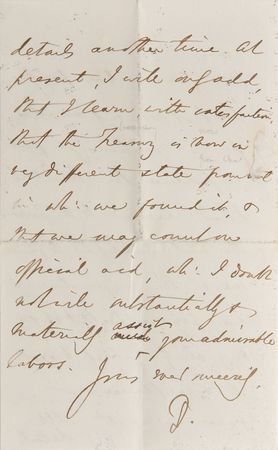 details another time. At
present, I will only add,
that I learn with satisfaction,
that the Treasury is now in
very different state from that
in wh: we found it, &
that we may count on
official aid, wh: I doubt
not will substantially &
materially assist your admirable
labors.
Yours ever sincerely,
D.